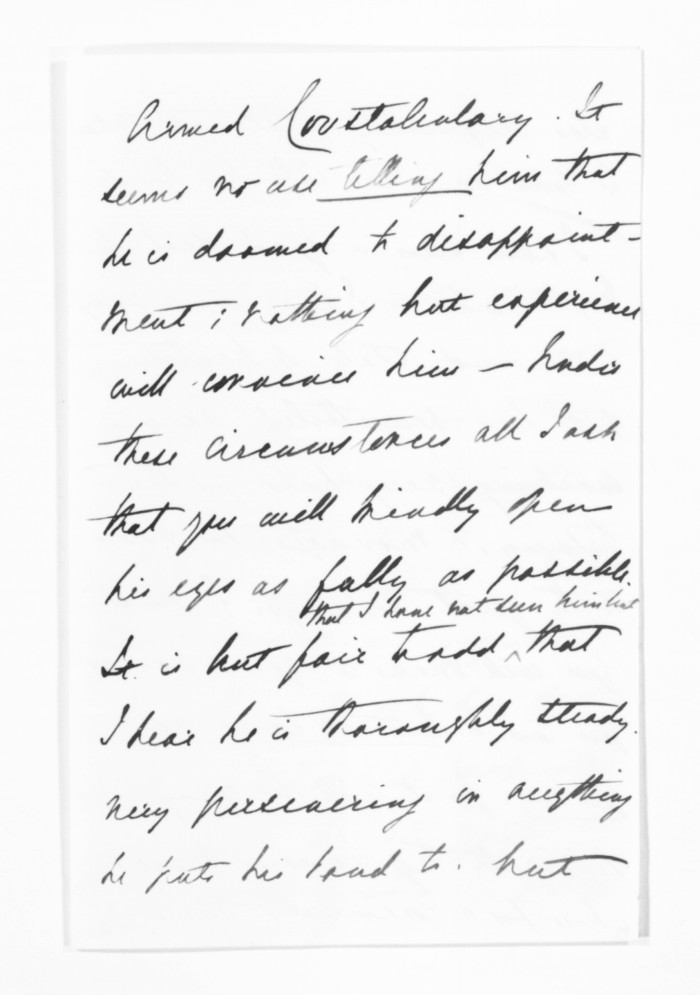 Armed Constabulary. It
seems no use telling him that
he is doomed to disappoint-
ment; nothing but experience
will convince him – Under
these circumstances all I ask
that you will kindly open
his eyes as fully as possible.
that I have not seen him but
It is but fair to add ^ that
I hear he is thoroughly steady.
very persevering in anything
he puts his hand to. but